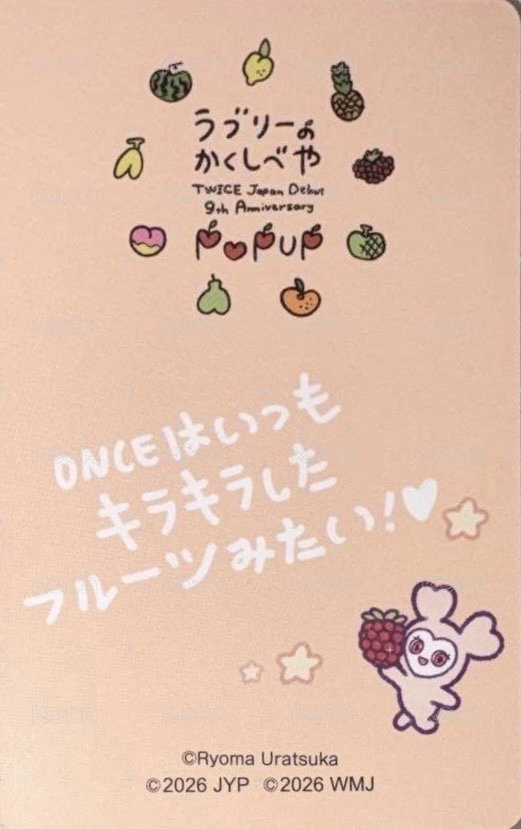 ラブリーの
かくしべや
TWICE Japan Debut
9th Anniversary
POPUP
ONCEはいつも
キラキラした
フルーツみたい!♥
©Ryoma Uratsuka
©2026 JYP ©2026 WMJ